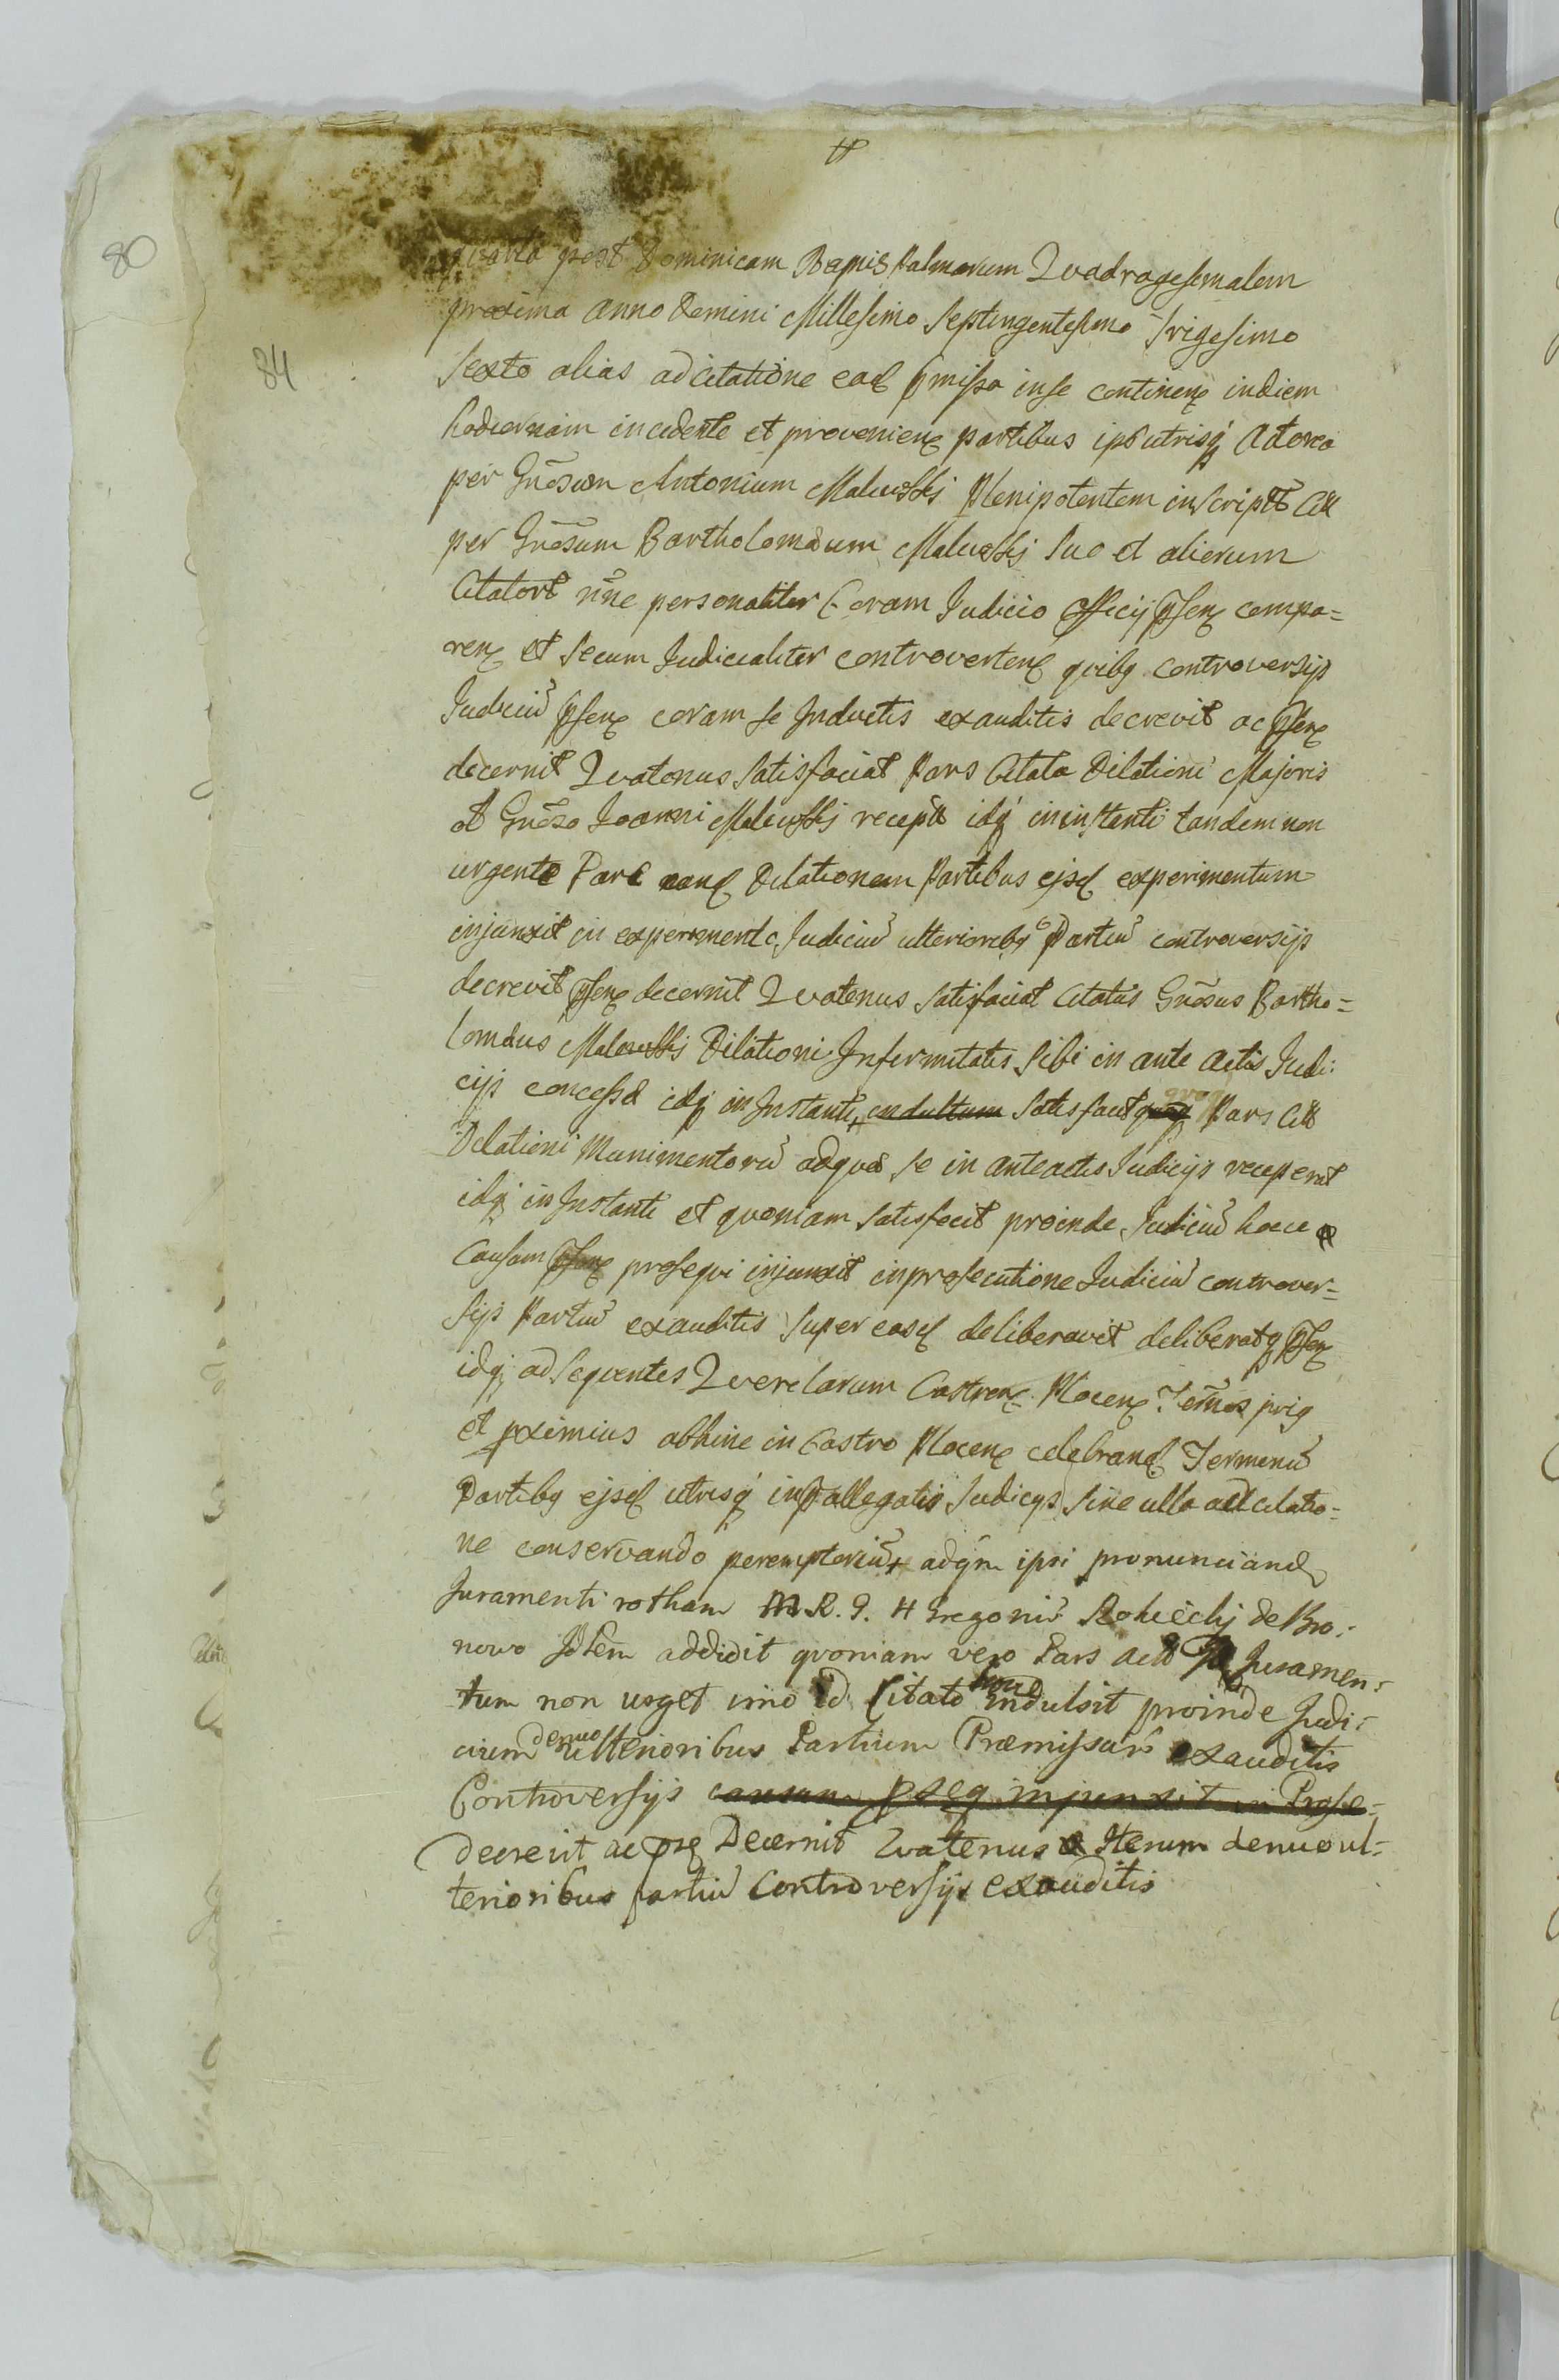 80
84
quarta post Dominicam Ramis Palmarum Quadragesimalem
proxima Anno Domini Millesimo Septingentesimo Trigesimo
Sexto alias ad Citatione ead pmissa in se continen indiem
hodiernam incidente et provenien partibus ips utrisq Actorea
per Gnosum Antonium Malewski Plenipotentem inscript Citt
per Gnosum Bartholomæum Malewski suo et aliorum
Citatort nne personaliter Coram Judicio Officij psen compa=
ren et secum Judicialiter controverten quibq controversijs
Judiciu psen coram se Inductis exauditis decrevit ac psen
decernit Quatenus Satisfaciat Pars Citata Dilationi Majoris
a Gnoso Joanni Malewski recept idq in instanti tandem non
urgente Parte eand Dilationem Partibus ejsd experimentum
injunxit in experimento Judiciu ulterioribq Partiu controversijs
decrevit psen decernit Quatenus satisfaciat Citatus Gnosus Bartho=
lomæus Malewski Dilationi Infirmitatis Sibi in ante actis Judi:
cijs concessæ idq in Instanti, indultum Satisfaciat quoq Pars Citt
Dilationi Munimentoru ad quas se in anteactis Judicijs receperat
idq in Instanti et quoniam satisfecit proinde Judiciu hocce
Causam psen prosequi injunxit in prosecutione Judiciu controver=
sijs Partiu exauditis super easd deliberavit deliberatq psen
idq ad sequentes Querelarum Castren Plocen Termos priq
et pximius abhinc in Castro Plocen celebrand Terminu
Partibq ejsd utrisq in pallegatis Judicijs Sine ulla adcitatio=
ne conservando peremptoriu adqm ipsi pronunciand
Juramenti rotham M. R. G. H Gregoriu Rokicki de Bro:
nowo Idem addidit quoniam vero Pars Act Juramen:
tum non urget imo id Citato indulsit proinde Judi:
cium denuo ulterioribus Partium Præmissaru exauditis
Controversijs causam pseq injunxit in Prose=
Decrevit ac psq Decernit Quatenus Iterum denuo ul=
terioribus partiu Controversijs exauditis